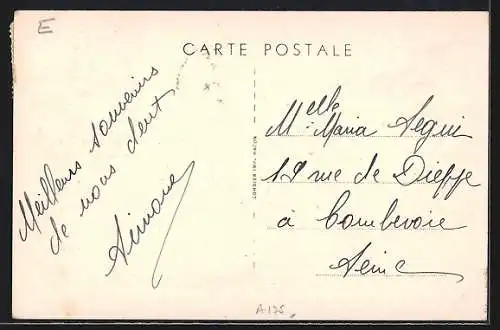 E
CARTE POSTALE
Meilleurs souvenirs
de nous deux
Simone
COMBIER IMP. MACON
Melle Maria Segui
19 rue de Dieppe
à Combevoie
Seine
A175